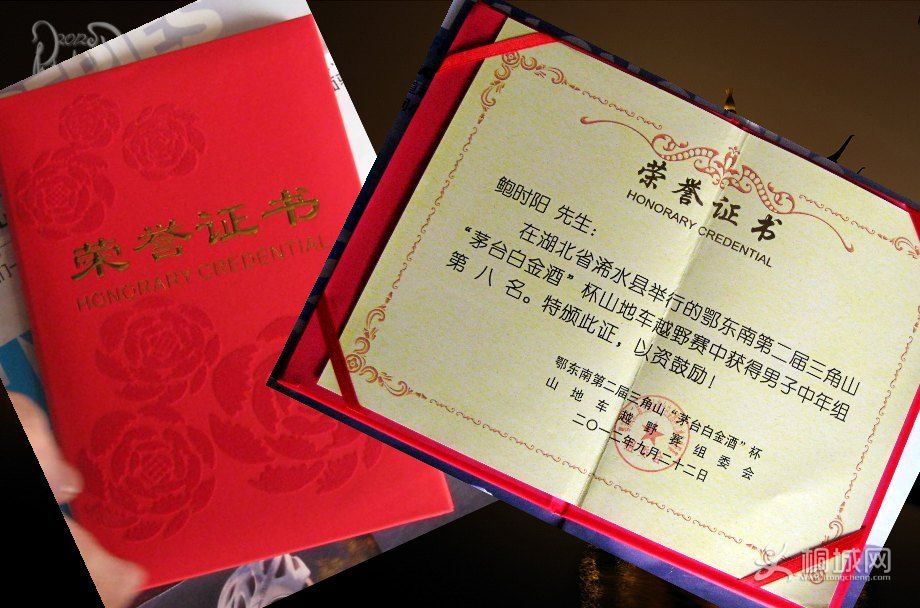 荣誉证书
HONORARY CREDENTIAL
荣誉证书
HONORARY CREDENTIAL
鲍时阳 先生：
在湖北省浠水县举行的鄂东南第二届三角山
“茅台白金酒”杯山地车越野赛中获得男子中年组
第八名。特颁此证，以资鼓励！
鄂东南第二届三角山“茅台白金酒”杯
山地车越野赛组委会
二〇一二年九月二十二日
桐城网
itongcheng.com